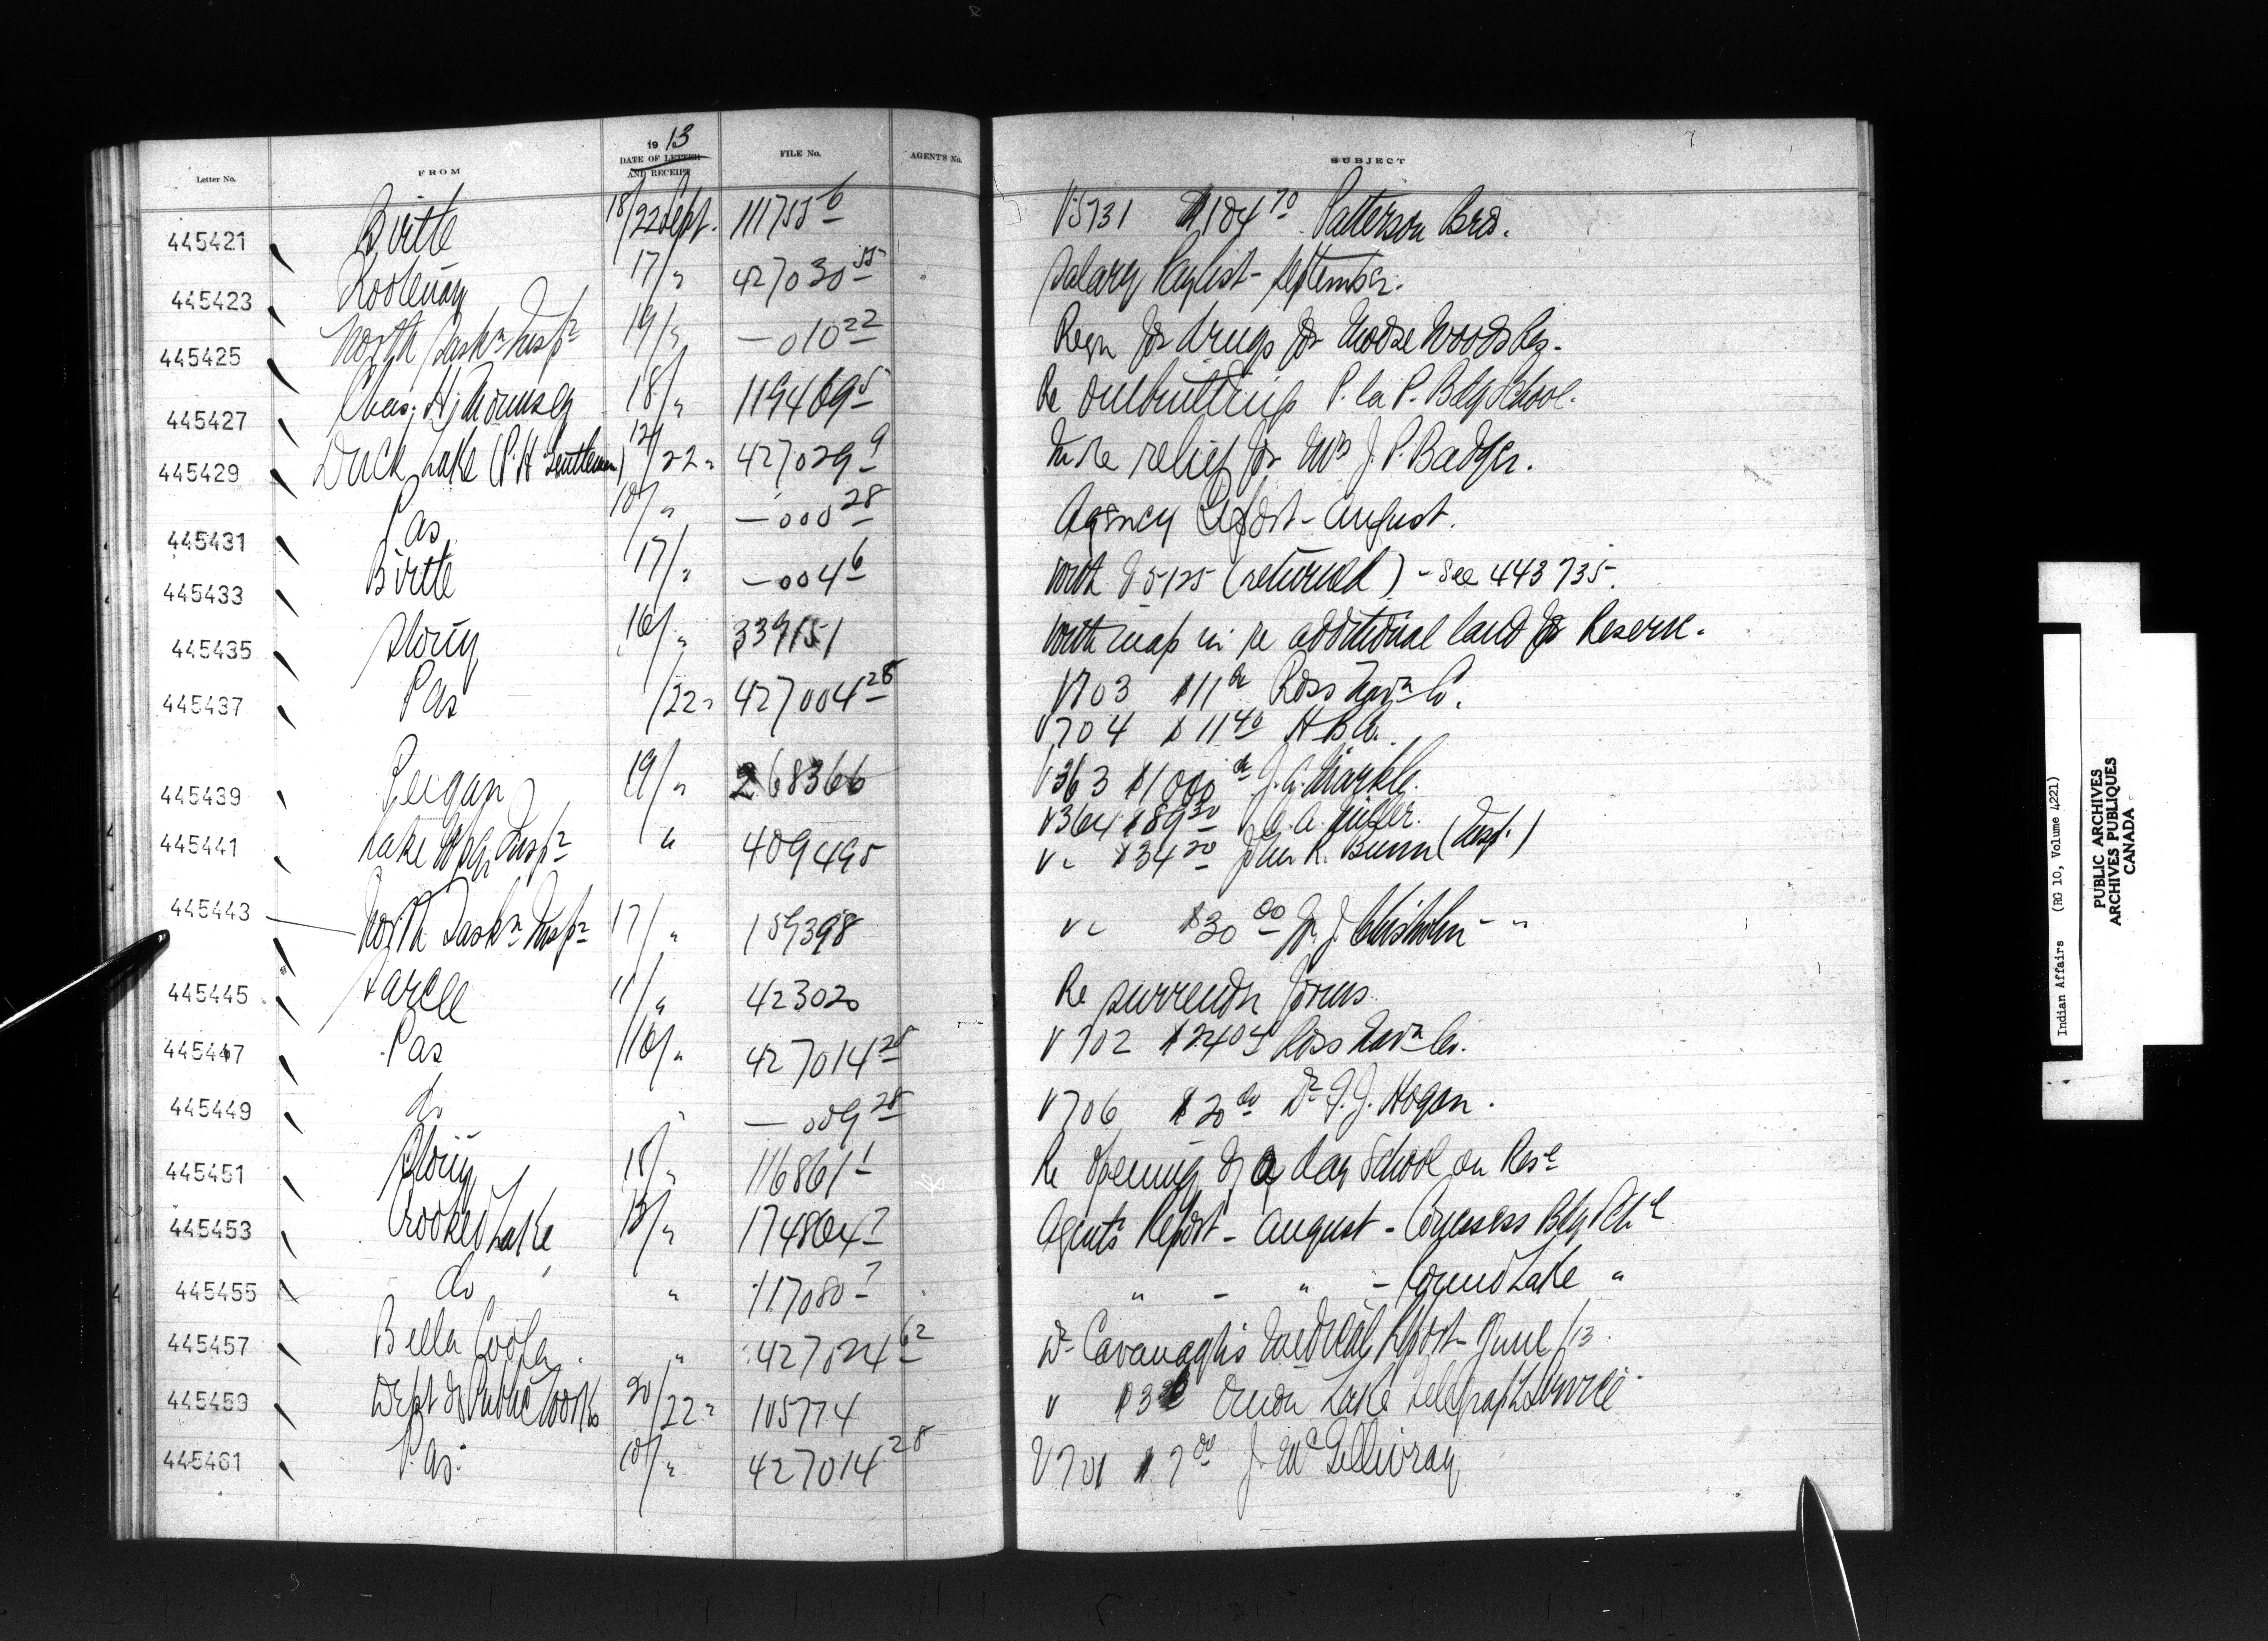 1913
Letter No. FROM DATE OF LETTER AND RECEIPT FILE No. AGENT'S No. SUBJECT
445421 Birtle 18/22 Sept. 111755 6 V5731 $104 70 Patterson Bros.
445423 Kootenay 17/" 427030 55 Salary Paylist - September.
445425 North Sask n Insp n 19/" —010 22 Reqn for drugs for Moose Woods Res.
445427 Chas. H. 18/" 119469 5 Re outbuildings P. la P. Bdg School.
445429 Duck Lake (P. H. Gentleman) 12/22 " 427029 9 In re relief for Mrs J. P. Badger.
445431 Pas 10/" —000 28 Agency Report - August.
445433 Birtle 17/" —004 6 With V5125 (returned) - See 443735.
445435 Stony 16/" 339151 With map in re additional land for Reserve.
445437 Pas /22 " 427004 28 V703 $11 00 Ross Navn Co.
V704 $11 40 H B Co.
445439 Peigan 19/" 268366 V363 $1000 00 J. A. Markle.
V364 $89 30 A. Miller.
445441 Lake Wpg Insp n " 409495 V — $34 20 John R. Bunn (Insp.)
445443 North Sask n Insp n 17/" 159398 V — $30 00 W. J. Chisholm - "
445445 Sarcee 11/" 423020 Re surrender forms.
445447 Pas 16/" 427014 28 V702 $24 05 Ross Navn Co.
445449 do " —009 28 V706 $20 00 Dr. J. Hogan.
445451 Stony 18/" 116861 1 Re opening of a day School on Res e
445453 Crooked Lake 13/" 174864 7 Agents Report - August - Cowesess Bdg Sch l
445455 do " 117080 7 " - " - Round Lake "
445457 Bella Coola " 427024 62 Dr Cavanagh's Medical Report - June /13.
445459 Dept of Public Works 20/22 " 105774 V Onion Lake Telegraph Service
445461 Pas. 10/" 427014 28 V701 $7 00 J. McGillivray
Indian Affairs (RG 10, Volume 4221)
PUBLIC ARCHIVES
ARCHIVES PUBLIQUES
CANADA